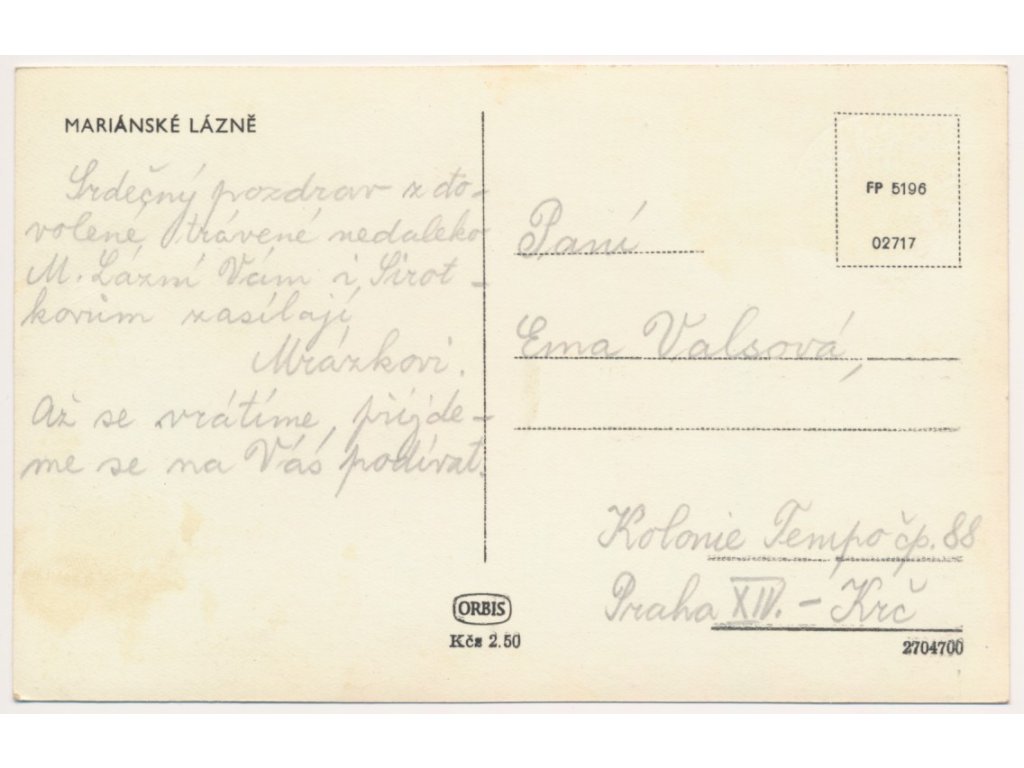 MARIÁNSKÉ LÁZNĚ
Srdečný pozdrav z do-
volené, trávené nedaleko
M. Lázní Vám i Sirot-
kovům zasílají
Mrázkovi.
Až se vrátíme, přijde-
me se na Vás podívat.
FP 5196
02717
Paní
Ema Valsová,
Kolonie Tempo čp. 88
Praha XIV. - Krč
ORBIS
Kčs 2.50
2704700